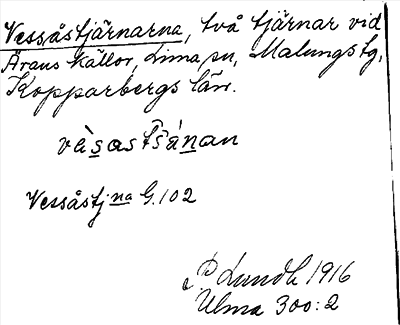 Vessåstjärnarna, två tjärnar vid
Äraus källor, Lima sn, Malungs tg,
Kopparbergs län.
vàsastšánan
Vessåstjna G. 102
P Lundh 1916
Ulma 300:2